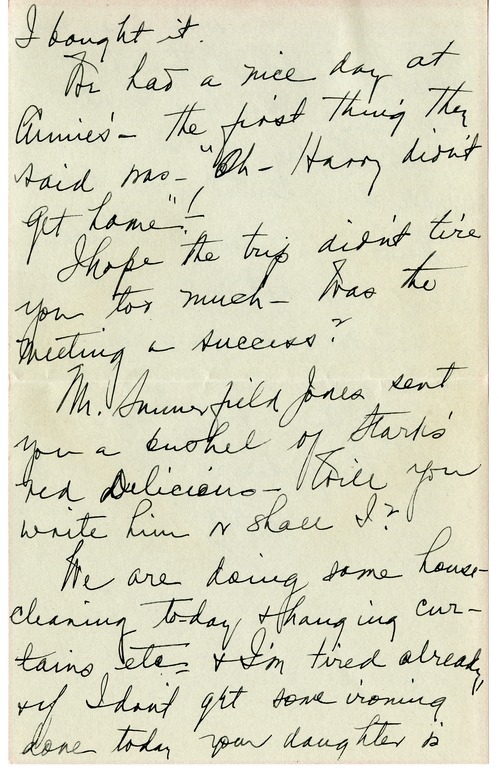 I bought it.
We had a nice day at
Annie's - the first thing they
said was - "Oh - Harry didn't
get home"! -
I hope the trip didn't tire
you too much - Was the
meeting a success?
Mr. Summerfield Jones sent
you a bushel of Stark's
red Delicious - Will you
write him or shall I?
We are doing some house-
cleaning to-day & hanging cur-
tains etc - & I'm tired already,
& if I don't get some ironing
done today your daughter is